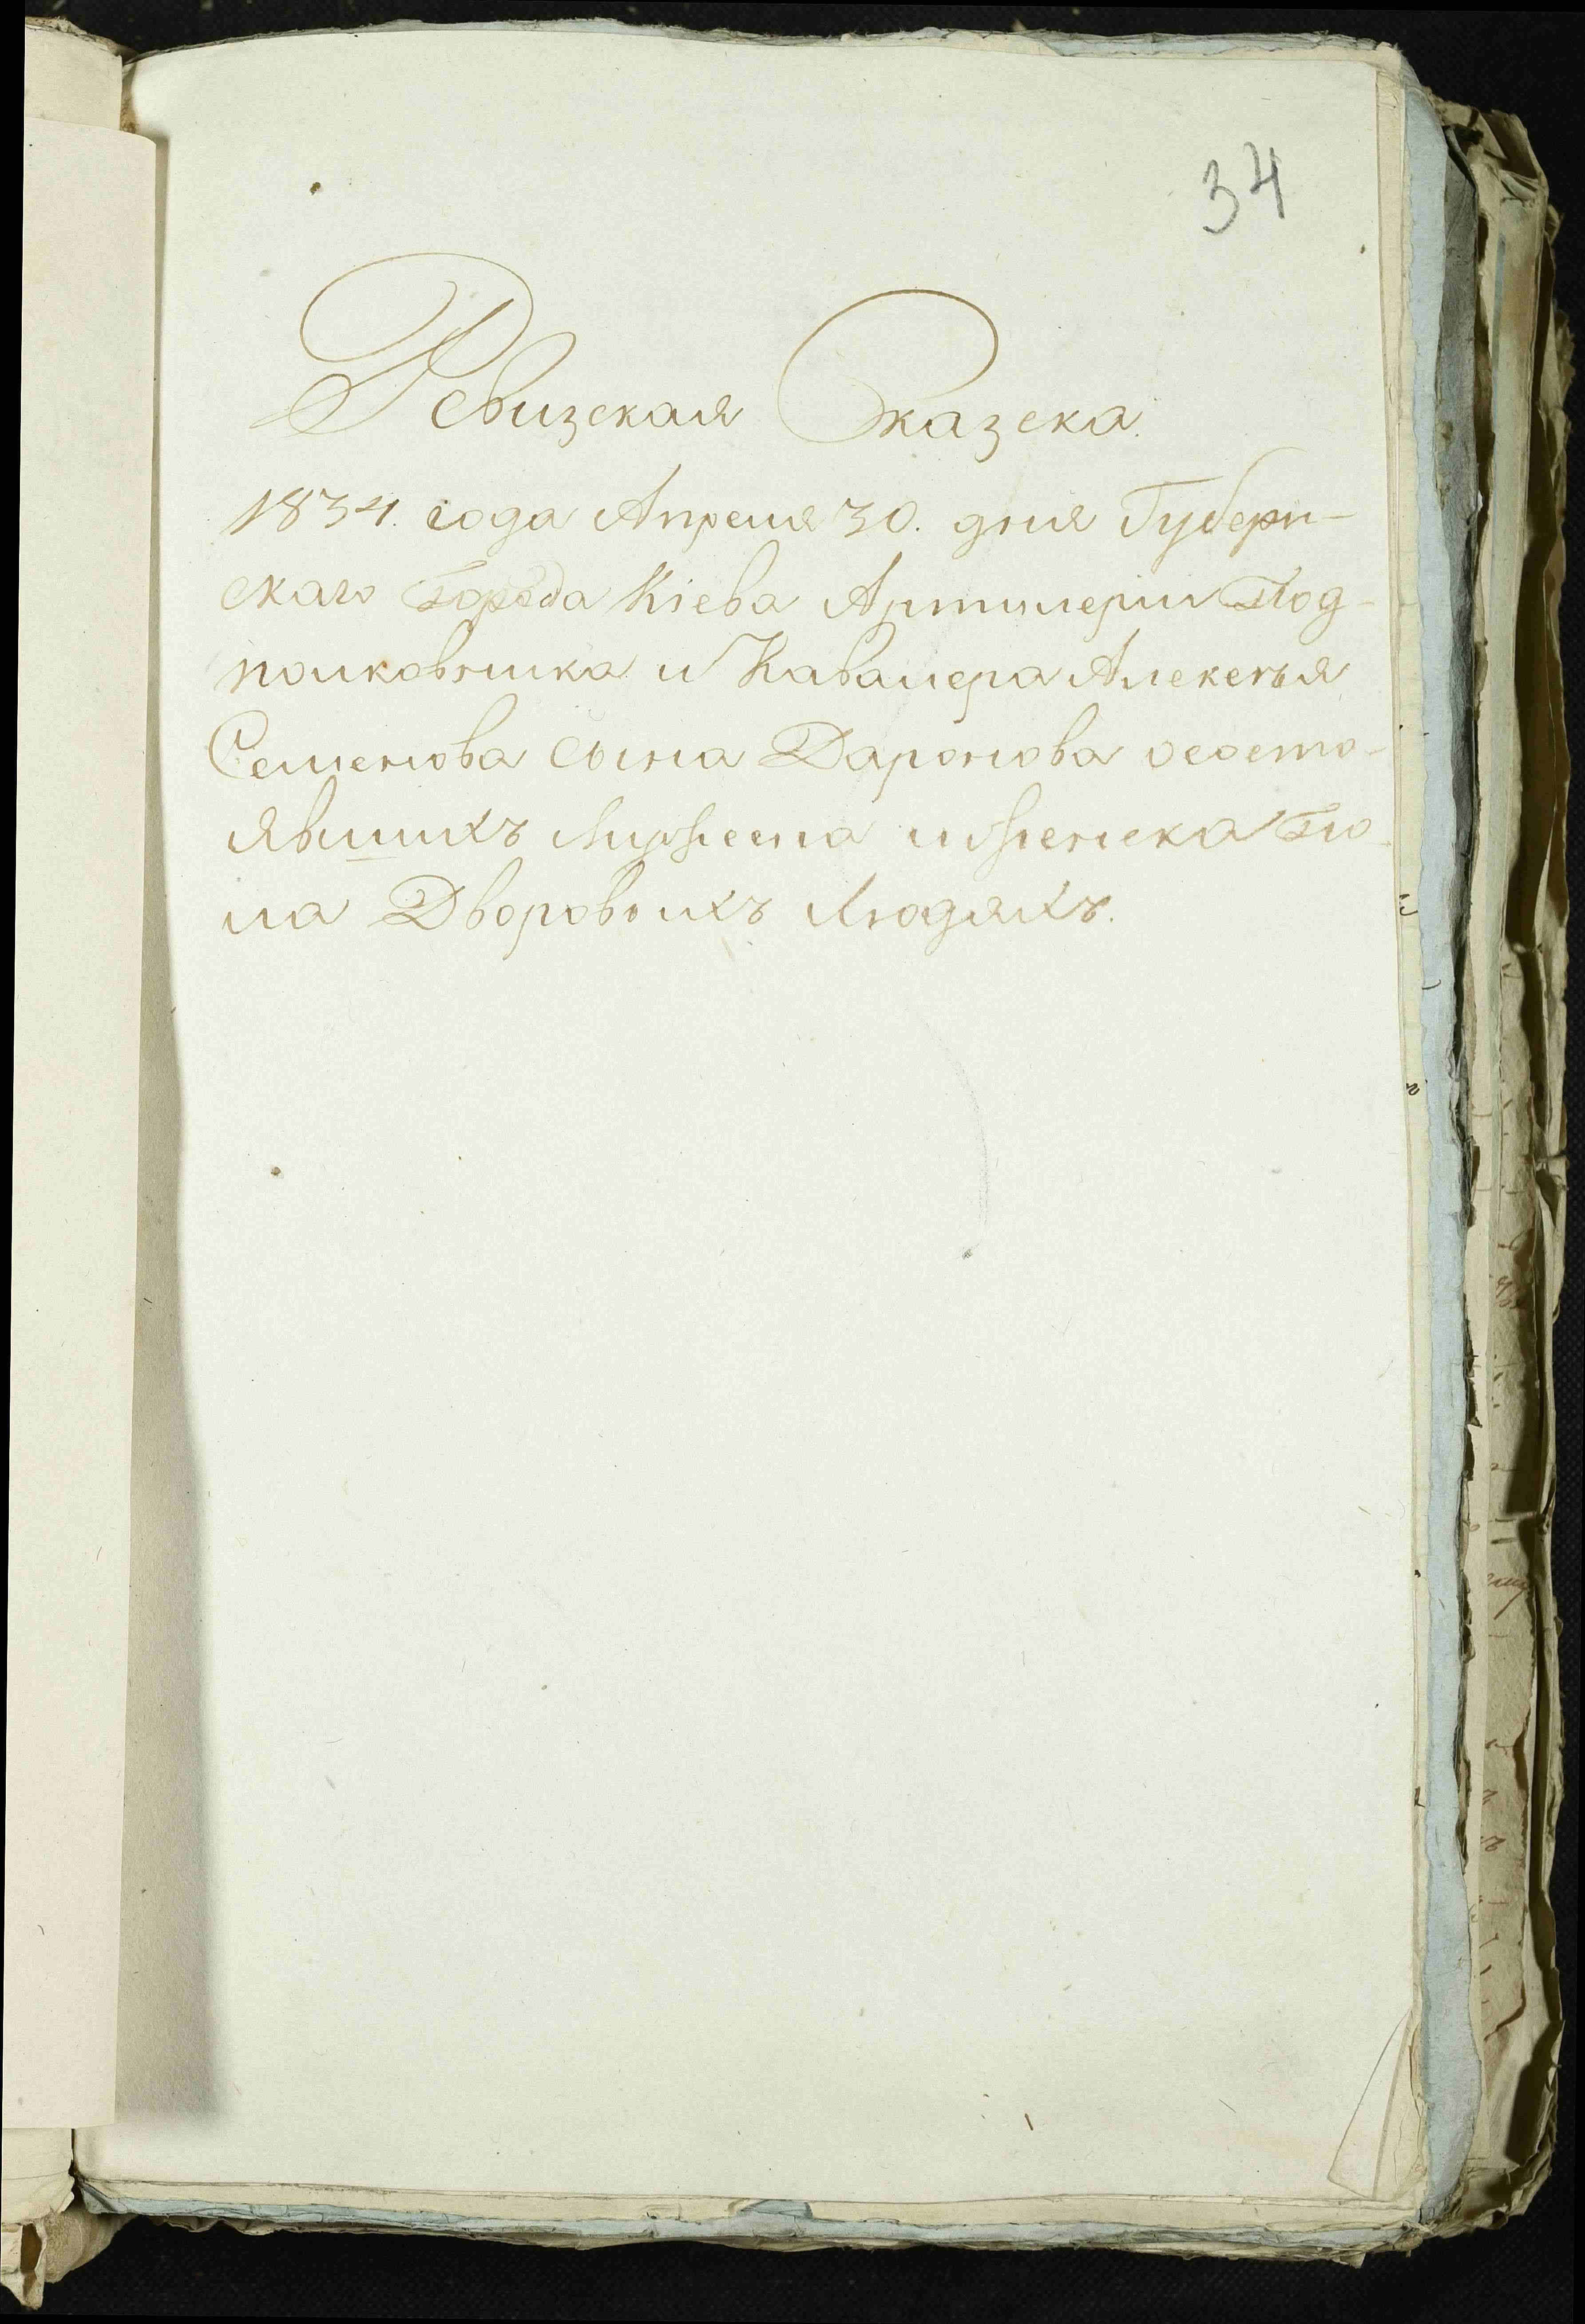 34
Ревизская Сказска.
1834. года Апреля 30. дня Губерн-
скаго Города Кіева Артилерии Под-
полковника и Кавалера Алексея
Семенова сына Даронова ососто-
явшихъ Мужеска и женска По-
ла Дворовыхъ Людяхъ.